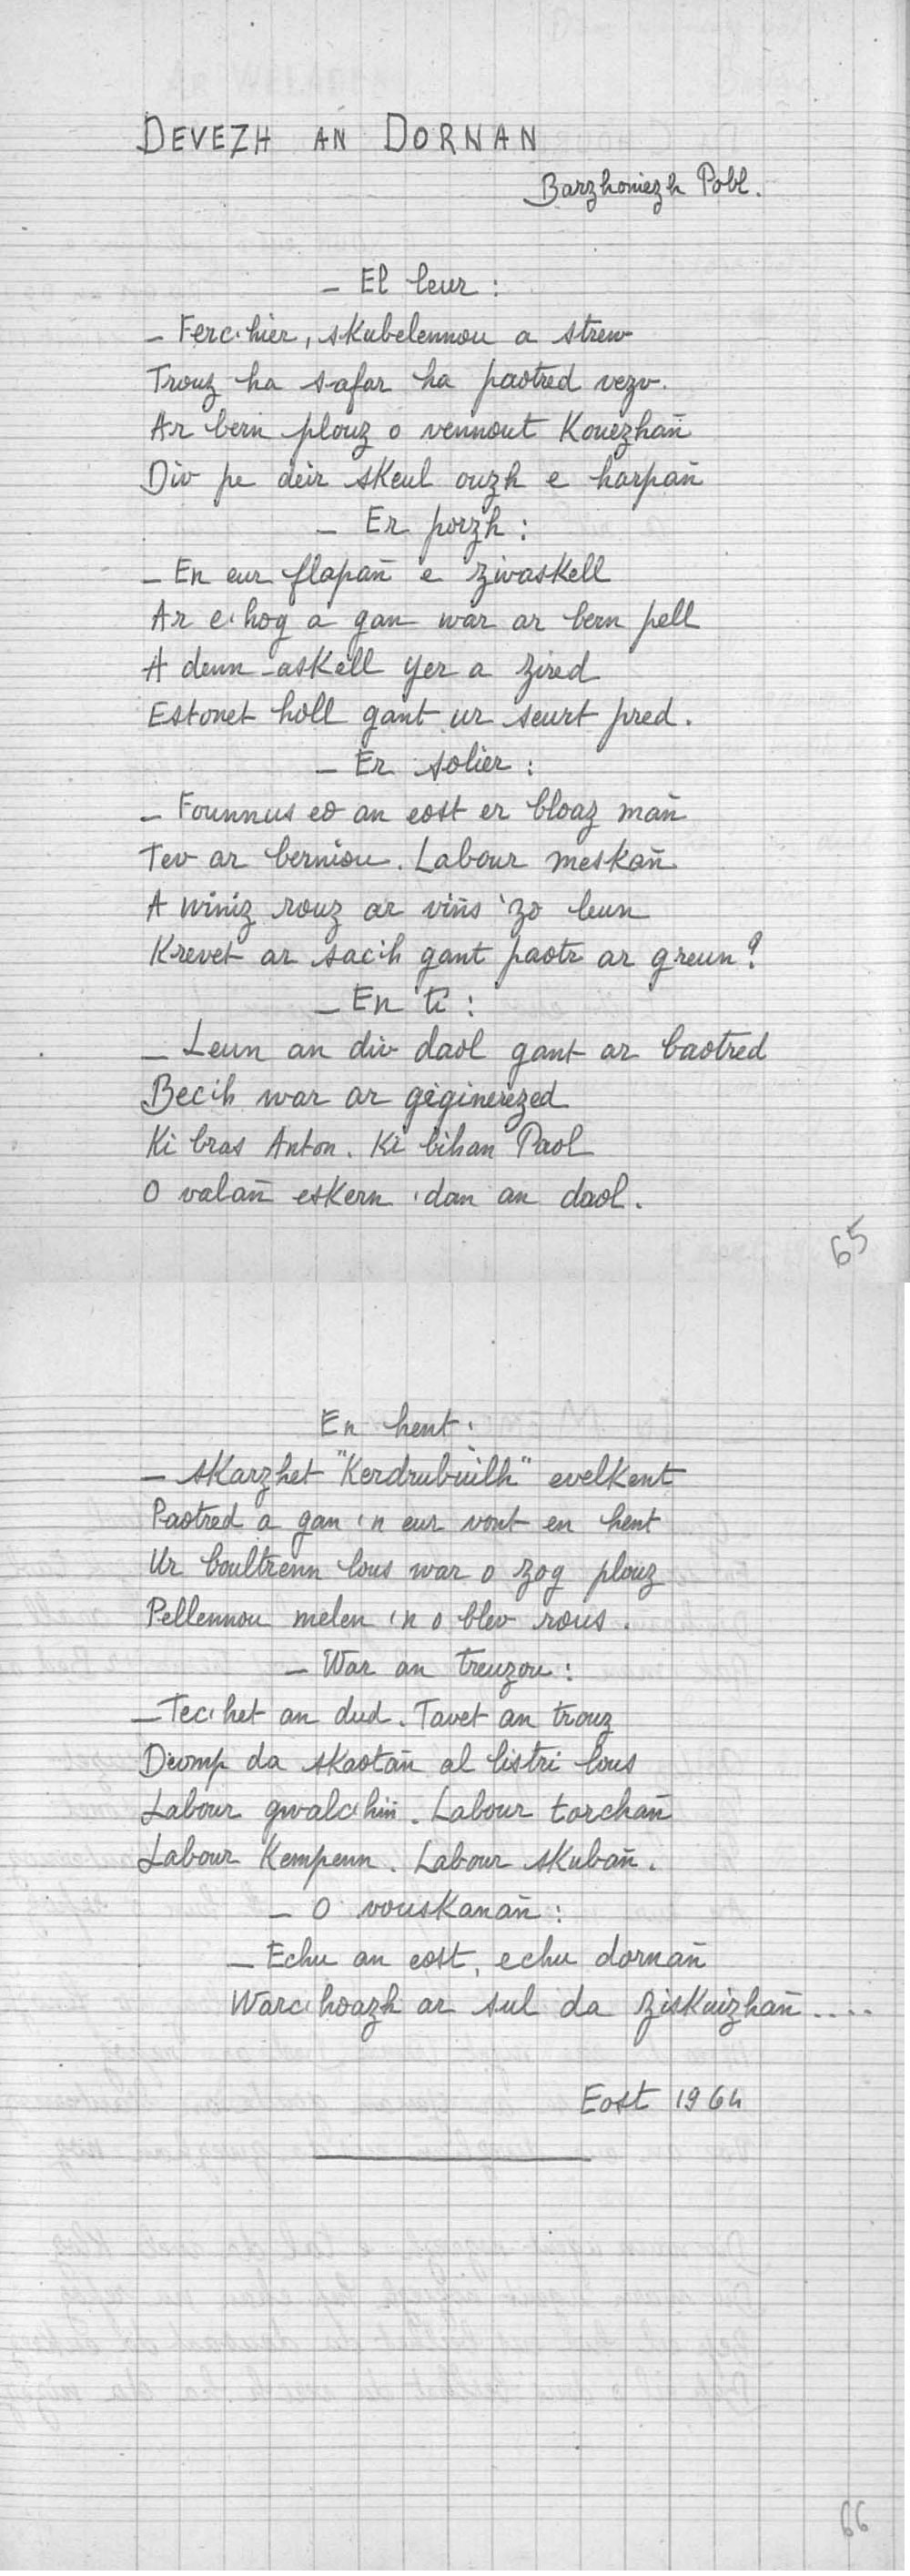 DEVEZH AN DORNAN
Barzhoniezh Pobl.
– El leur :
– Ferc'hier, skubelennou a strew
Trouz ha safar ha paotred vezv.
Ar bern plouz o vennout Kouezhañ
Div pe deir skeul ouzh e harpañ
– Er porzh :
– En eur flapañ e zivaskell
Ar c'hog a gan war ar bern pell
A denn-askell yer a zired
Estonet holl gant ur seurt pred.
– Er solier :
– Founnus eo an eost er bloaz mañ
Tev ar berniou. Labour meskañ
A winiz rouz ar viñs 'zo leun
Krevet ar sac'h gant paotr ar greun ?
– En ti :
– Leun an div daol gant ar baotred
Bec'h war ar geginerezed
Ki bras Anton. Ki bihan Paol
O valañ eskern 'dan an daol.
65
En hent :
– Skarzhet "Kerdrubuilh" evelkent
Paotred a gan 'n eur vont en hent
Ur boultrenn lous war o zog plouz
Pellennou melen 'n o blev rous.
– War an treuzou :
– Tec'het an dud. Tavet an trouz
Deomp da skaotañ al listri lous
Labour gwalc'hiñ. Labour torchañ
Labour Kempenn. Labour skubañ.
– O vouskanañ :
– Echu an eost, echu dornañ
Warc'hoazh ar sul da ziskuizhañ ....
Eost 1964
66